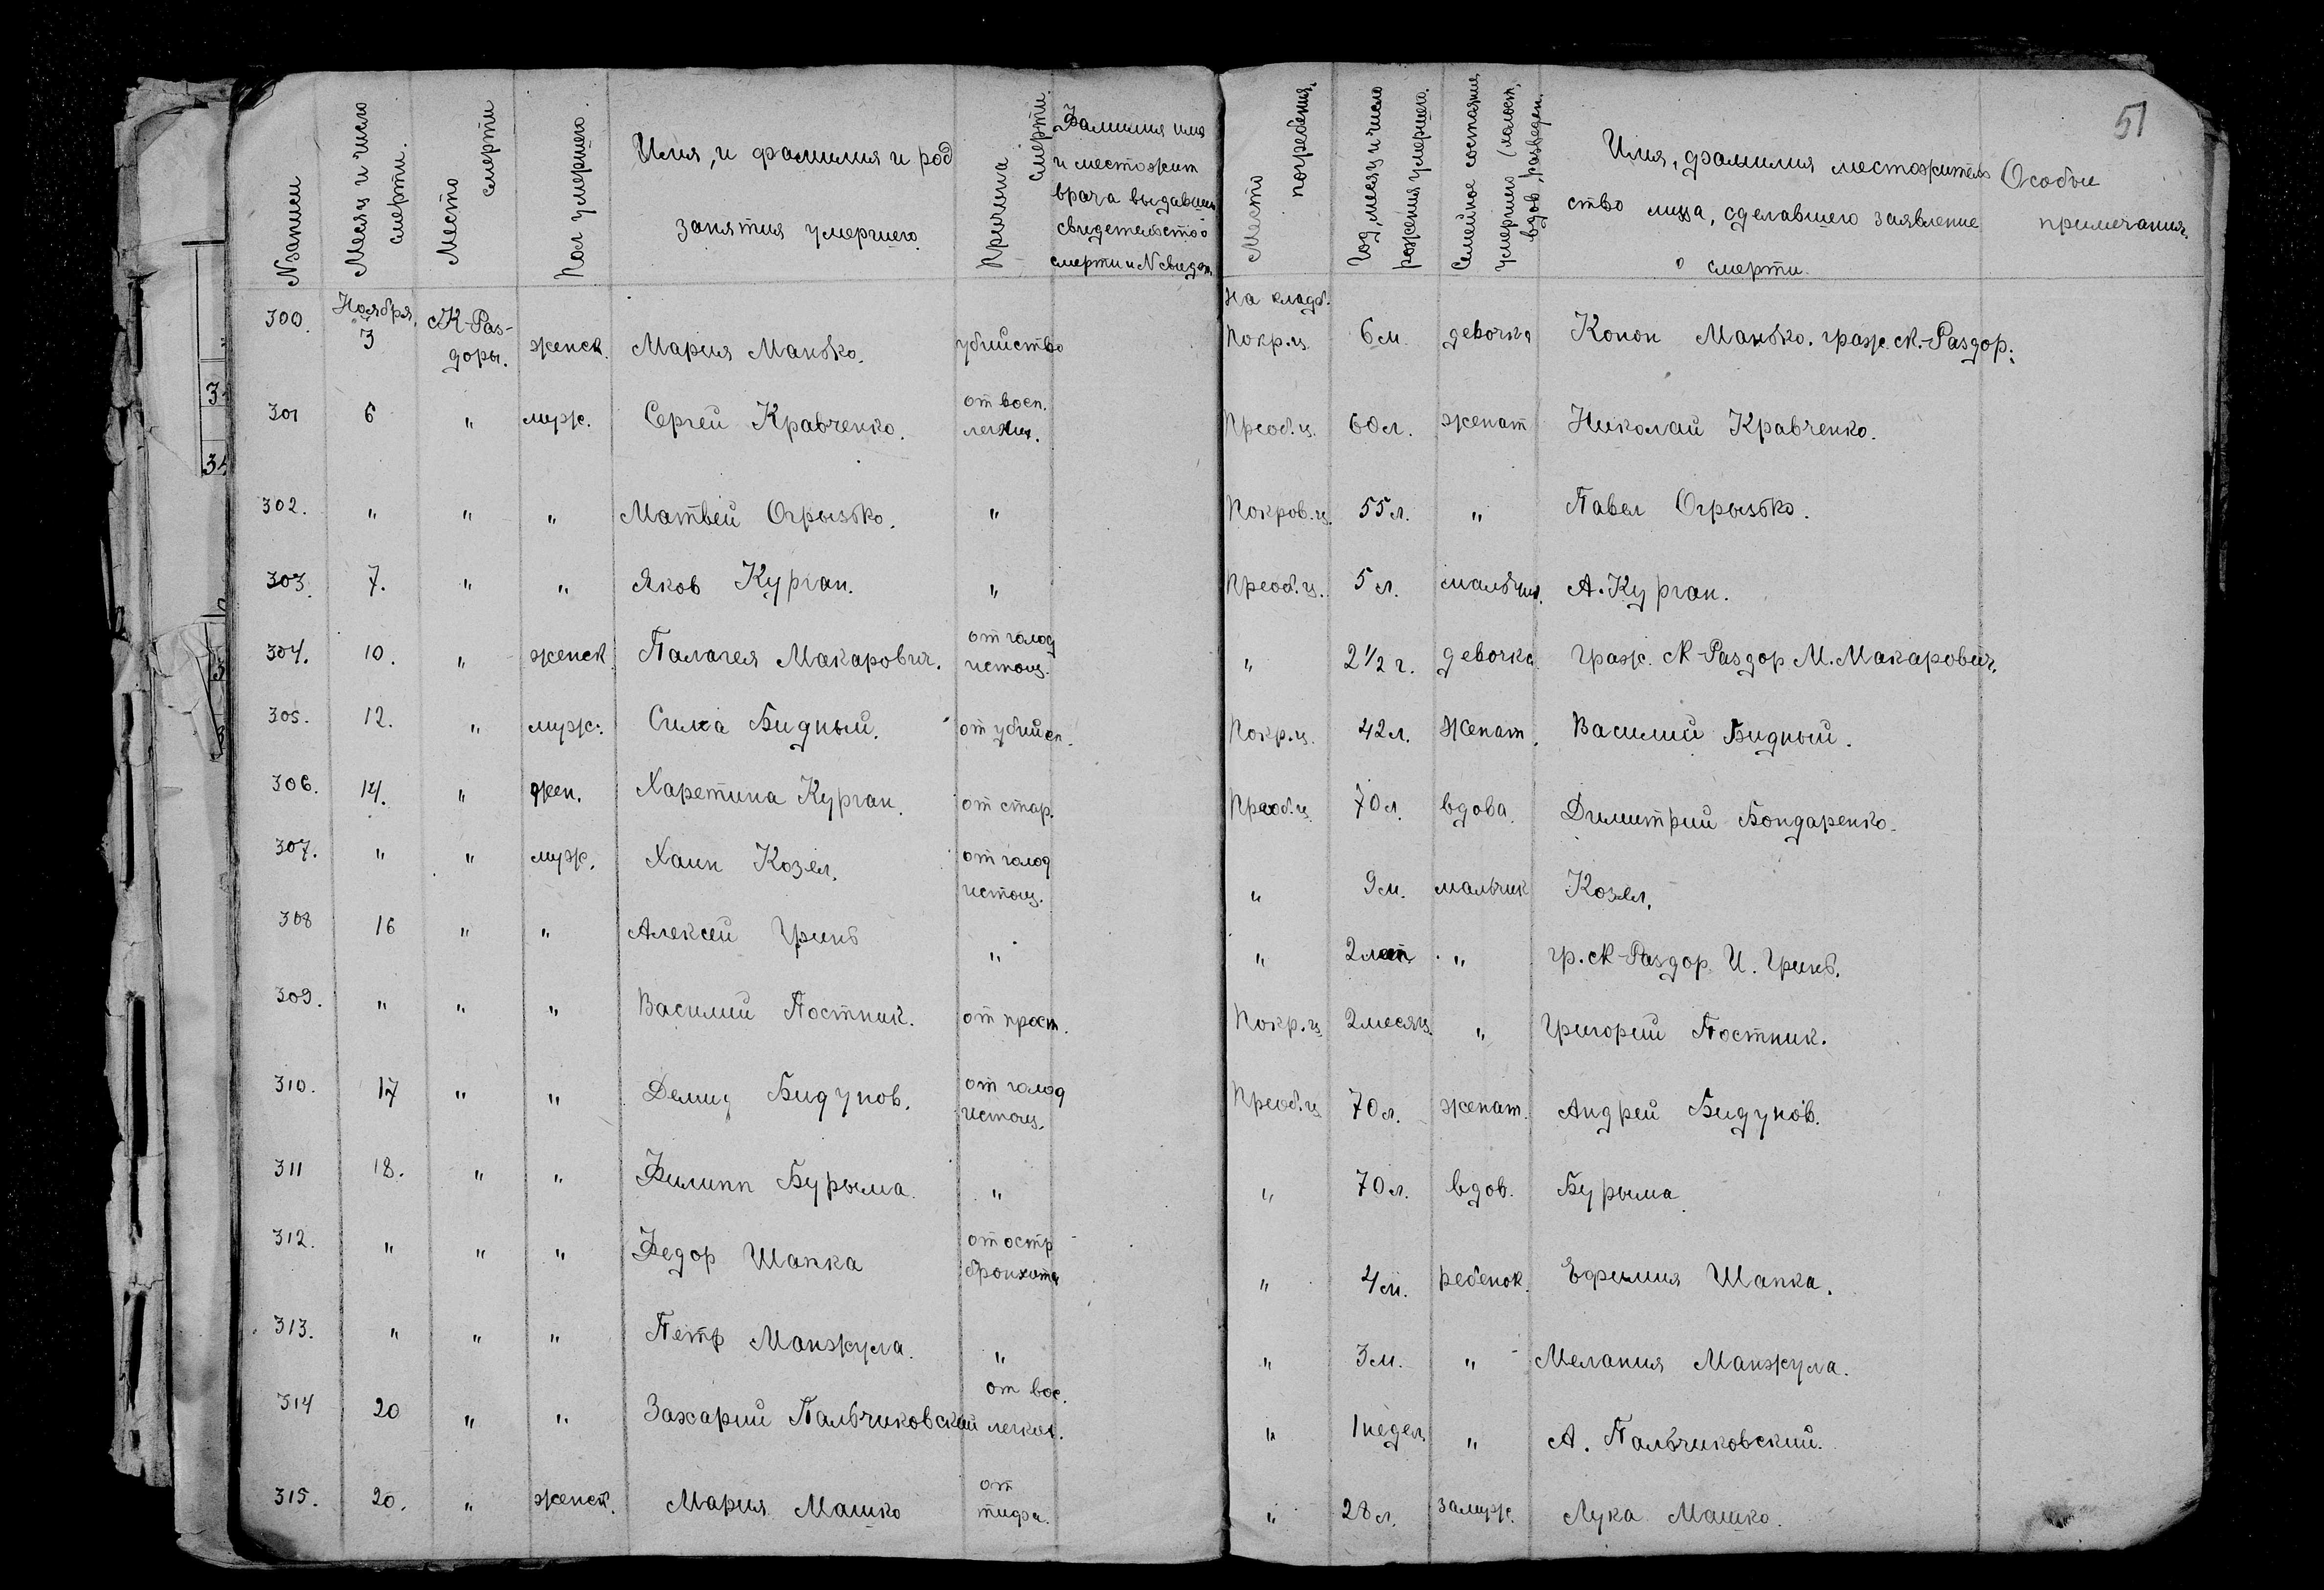 51
№ записи | Месяц и число смерти. | Место смерти | Пол умершего. | Имя, и фамилия и род занятия умершего. | Причина смерти. | Фамилия имя и местожит врача выдавш свидетельство о смерти и N свидет. | Место погребения. | Год, месяц и число рождения умершего. | Семейное состояние умершего (холост, вдов, разведен. | Имя, фамилия местожитель ство лица, сделавшего заявление о смерти. | Особые примечания.
300. | Ноября. 3 | с К-Раз- доры. | женск. | Мария Манько. | убийство | | На кладб. Покр.ц. | 6 м. | девочка | Конон Манько. граж. с К.-Раздор.
301 | 6 | " | муж. | Сергей Кравченко. | от восп. легких. | | Преоб.ц. | 60 л. | женат | Николай Кравченко.
302. | " | " | " | Матвей Огрызько. | " | | Покров.ц. | 55 л. | " | Павел Огрызько.
303. | 7. | " | " | Яков Курган. | " | | Преоб.ц. | 5 л. | мальчик. | А. Курган.
304. | 10. | " | женск | Палагея Макарович. | от голод истощ. | | " | 2½ г. | девочка | граж. с К-Раздор М. Макарович.
305. | 12. | " | муж. | Сила Бидный. | от убийсп. | | Покр.ц. | 42 л. | женат. | Василий Бидный.
306. | 14. | " | жен. | Харетина Курган. | от стар. | | Преоб.ц. | 70 л. | вдова. | Димитрий Бондаренко.
307. | " | " | муж. | Хаин Козел. | от голод истощ. | | " | 9 м. | мальчик | Козел.
308 | 16 | " | " | Алексей Гринь | " | | " | 2 лет | " | гр. с К-Раздор. И. Гринь.
309. | " | " | " | Василий Постник. | от прост. | | Покр.ц | 2 месяц. | " | Григорий Постник.
310. | 17 | " | " | Демид Бидунов. | от голод истощ. | | Преоб.ц | 70 л. | женат. | Андрей Бидунов.
311 | 18. | " | " | Филипп Бурыма. | " | | " | 70 л. | вдов. | Бурыма.
312. | " | " | " | Федор Шапка | от остр бронхита | | " | 4 м. | ребенок. | Ефимия Шапка.
313. | " | " | " | Петр Манжула. | " | | " | 3 м. | " | Мелания Манжула.
314 | 20 | " | " | Захарий Пальчиковский | от вос. легких. | | " | 1 недел. | " | А. Пальчиковский.
315. | 20. | " | женск. | Мария Машко | от тифа. | | " | 28 л. | замуж. | Лука Машко.